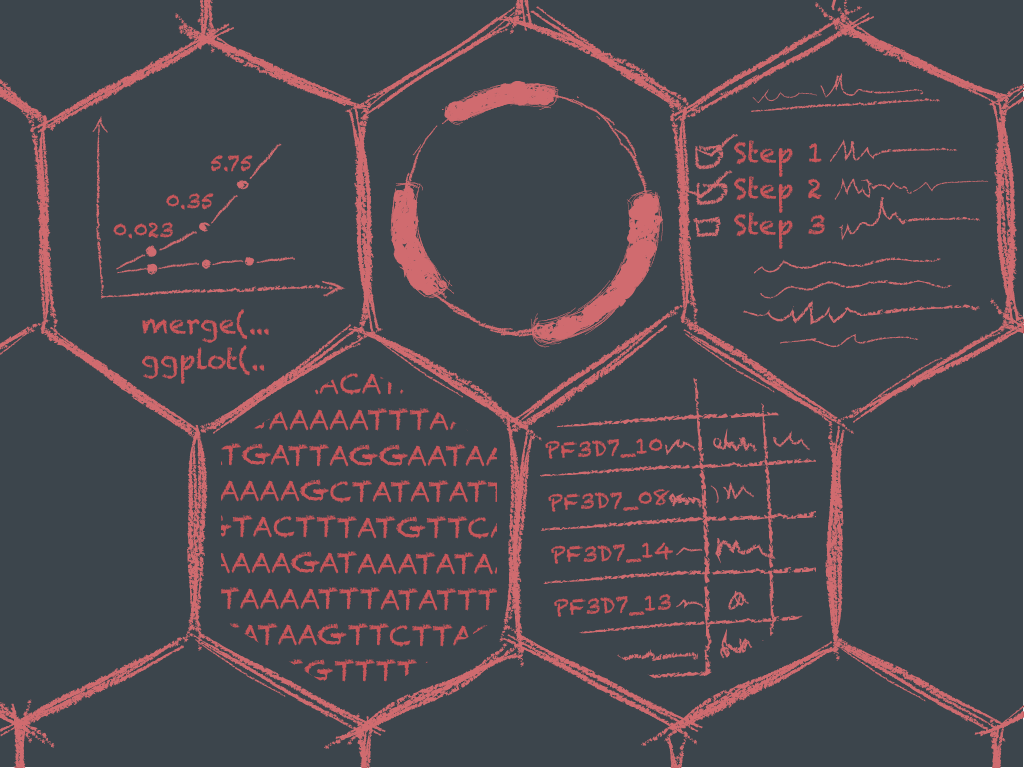 5.75
0.35
0.023
merge(...
ggplot(..
Step 1
Step 2
Step 3
ACA
AAAAATTTA
TGATTAGGAATAA
AAAAGCTATATATT
GTACTTTATGTTCA
AAAGATAAATATA
TAAAATTTATATTT
ATAAGTTCTTA
GTTTT
PF3D7_10
PF3D7_08
PF3D7_14
PF3D7_13